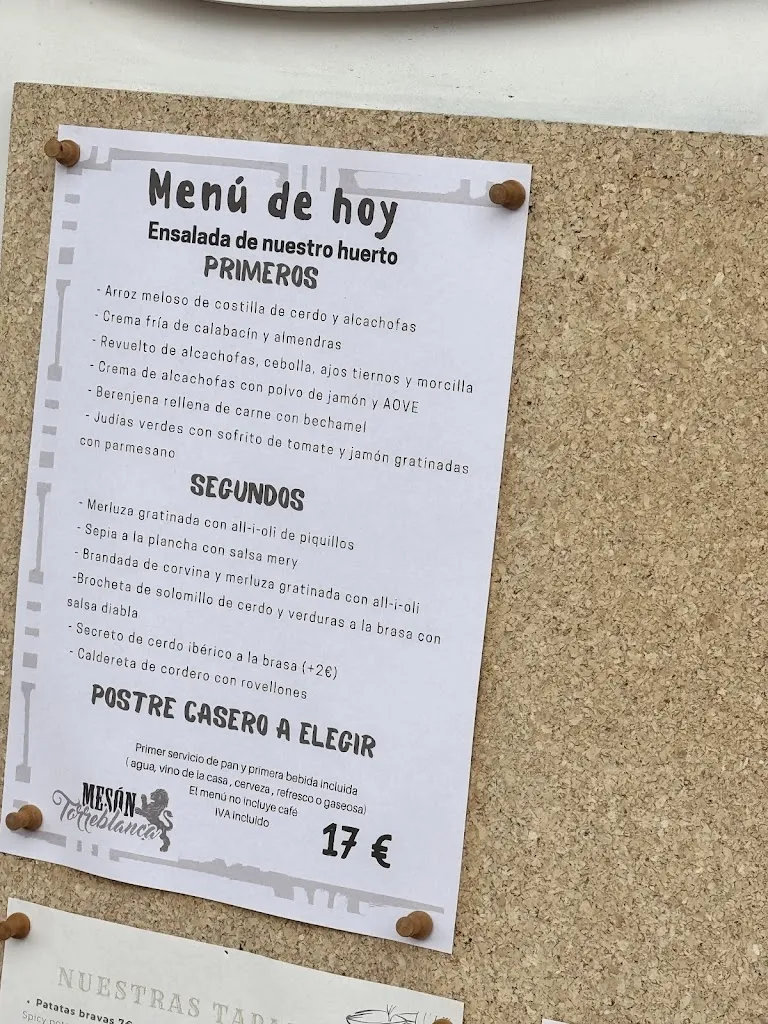 Menú de hoy
Ensalada de nuestro huerto
PRIMEROS
- Arroz meloso de costilla de cerdo y alcachofas
- Crema fría de calabacín y almendras
- Revuelto de alcachofas, cebolla, ajos tiernos y morcilla
- Crema de alcachofas con polvo de jamón y AOVE
- Berenjena rellena de carne con bechamel
- Judías verdes con sofrito de tomate y jamón gratinadas
con parmesano
SEGUNDOS
- Merluza gratinada con all-i-oli de piquillos
- Sepia a la plancha con salsa mery
- Brandada de corvina y merluza gratinada con all-i-oli
-Brocheta de solomillo de cerdo y verduras a la brasa con
salsa diabla
- Secreto de cerdo ibérico a la brasa (+2€)
- Caldereta de cordero con rovellones
POSTRE CASERO A ELEGIR
Primer servicio de pan y primera bebida incluida
( agua, vino de la casa , cerveza , refresco o gaseosa)
El menú no incluye café
IVA incluido
MESÓN
Torreblanca
17 €
NUESTRAS
• Patatas bravas
Spicy